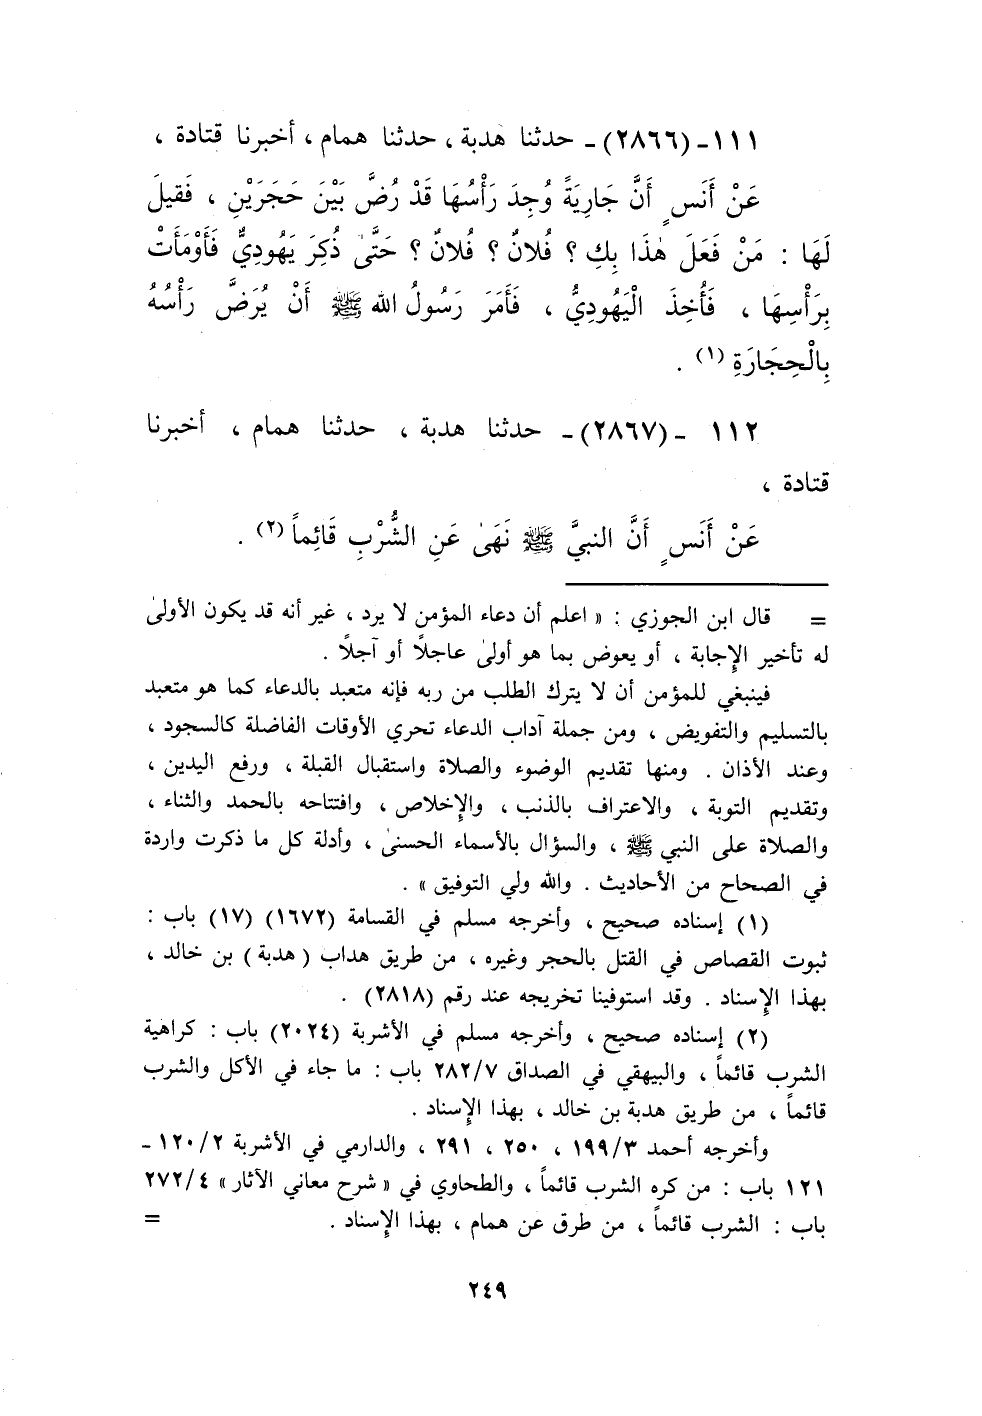 ١١١ـ (٢٨٦٦) ـ حدثنا هدبة ، حدثنا همام ، أخبرنا قتادة ،
عَنْ أَنَسٍ أَنَّ جَارِيَةً وُجِدَ رَأْسُهَا قَدْ رُضَّ بَيْنَ حَجَرَيْنِ ، فَقيلَ
لَهَا : مَنْ فَعَلَ هٰذَا بِكِ ؟ فُلانٌ ؟ فُلانٌ ؟ حَتَّىٰ ذُكِرَ يَهُودِيٌّ فَأَوْمَأَتْ
بِرَأْسِهَا ، فَأُخِذَ الْيَهُودِيُّ ، فَأَمَرَ رَسُولُ الله ﷺ أَنْ يُرَضَّ رَأْسُهُ
بِالْحِجَارَةِ (١) .
١١٢ ـ (٢٨٦٧) ـ حدثنا هدبة ، حدثنا همام ، أخبرنا
قتادة ،
عَنْ أَنَسٍ أَنَّ النبيَّ ﷺ نَهَىٰ عَنِ الشُّرْبِ قَائِماً (٢) .
= قال ابن الجوزي : « اعلم أن دعاء المؤمن لا يرد ، غير أنه قد يكون الأولىٰ
له تأخير الإِجابة ، أو يعوض بما هو أولىٰ عاجلاً أو آجلاً .
فينبغي للمؤمن أن لا يترك الطلب من ربه فإنه متعبد بالدعاء كما هو متعبد
بالتسليم والتفويض ، ومن جملة آداب الدعاء تحري الأوقات الفاضلة كالسجود ،
وعند الأذان . ومنها تقديم الوضوء والصلاة واستقبال القبلة ، ورفع اليدين ،
وتقديم التوبة ، والاعتراف بالذنب ، والإِخلاص ، وافتتاحه بالحمد والثناء ،
والصلاة على النبي ﷺ ، والسؤال بالأسماء الحسنىٰ ، وأدلة كل ما ذكرت واردة
في الصحاح من الأحاديث . والله ولي التوفيق » .
(١) إسناده صحيح ، وأخرجه مسلم في القسامة (١٦٧٢) (١٧) باب :
ثبوت القصاص في القتل بالحجر وغيره ، من طريق هداب ( هدبة ) بن خالد ،
بهذا الإِسناد . وقد استوفينا تخريجه عند رقم (٢٨١٨) .
(٢) إسناده صحيح ، وأخرجه مسلم في الأشربة (٢٠٢٤) باب : كراهية
الشرب قائماً ، والبيهقي في الصداق ٢٨٢/٧ باب : ما جاء في الأكل والشرب
قائماً ، من طريق هدبة بن خالد ، بهذا الإِسناد .
وأخرجه أحمد ١٩٩/٣ ، ٢٥٠ ، ٢٩١ ، والدارمي في الأشربة ١٢٠/٢ ـ
١٢١ باب : من كره الشرب قائماً ، والطحاوي في « شرح معاني الآثار » ٢٧٢/٤
باب : الشرب قائماً ، من طرق عن همام ، بهذا الإِسناد . =
٢٤٩